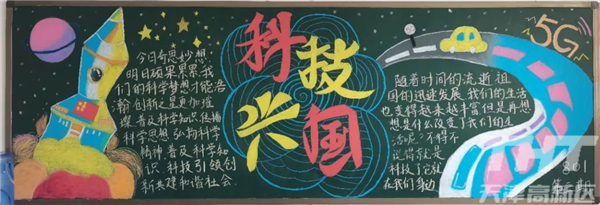 科技
兴国
今日奇思妙想
明日硕果累累我
们的科学梦想才能浩
瀚创新之星更加璀
璨普及科学知识传播
科学思想弘扬科学
精神普及科学知
识科技引领创
新共建和谐社会
5G
随着时间的流逝祖
国的迅速发展我们的生活
也变得越来越丰富但是再想
想是什么改变了我们的生
活呢?不得不
说得就是
科技了它就
在我们身边
801
天津高新区